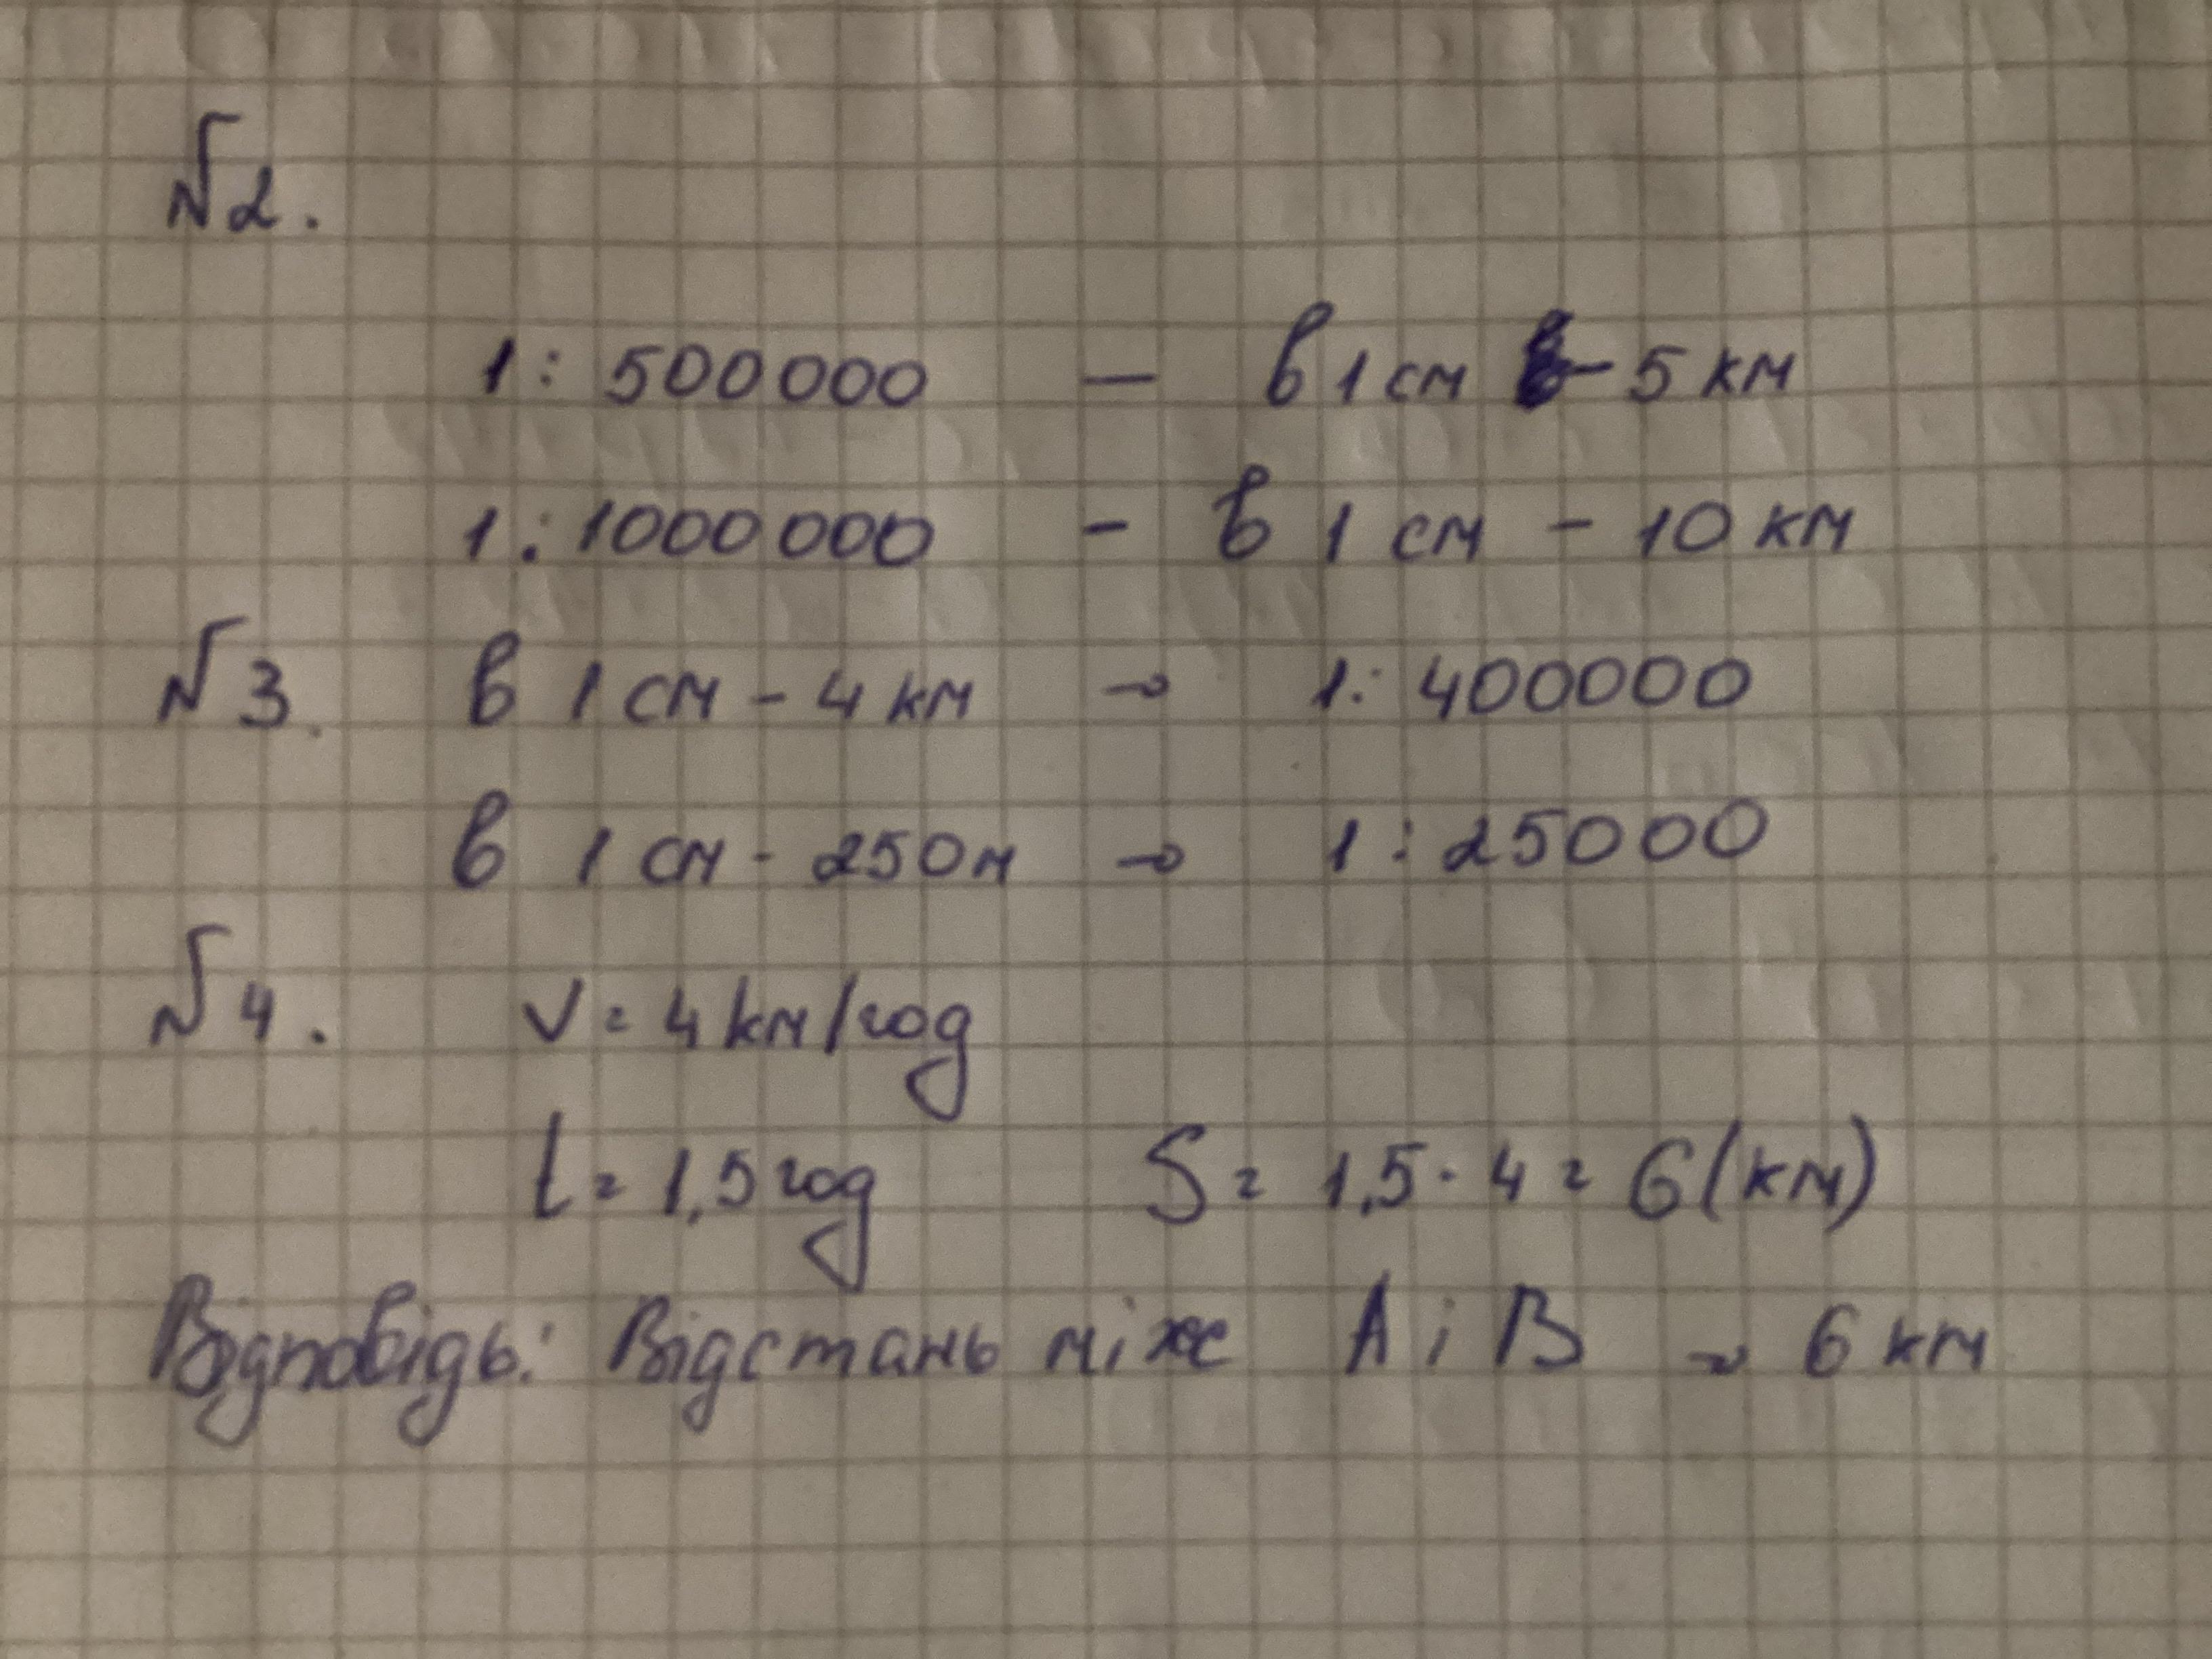 №2.
1: 500000 — в 1 см - 5 км
1: 1000000 - в 1 см - 10 км
№3. в 1 см - 4 км → 1: 400000
в 1 см - 250м → 1: 25000
№4. V = 4 км/год
t = 1,5 год S = 1,5 · 4 = 6 (км)
Відповідь: Відстань між А і В → 6 км